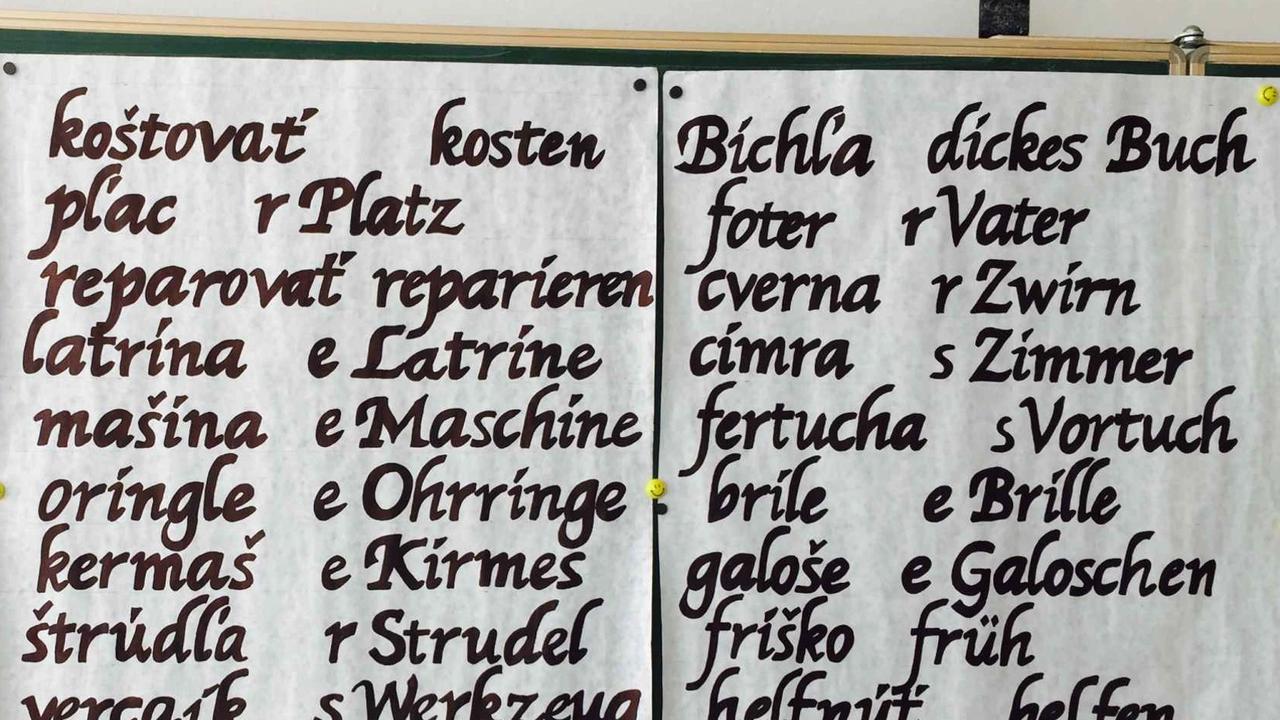 koštovať kosten
pľac r Platz
reparovať reparieren
latrína e Latrine
mašina e Maschine
oringle e Ohrringe
kermaš e Kirmes
štrúdľa r Strudel
vercajk s Werkzeug
Bichľa dickes Buch
foter r Vater
cverna r Zwirn
cimra s Zimmer
fertucha s Vortuch
brile e Brille
galoše e Galoschen
friško früh
helfnúť helfen